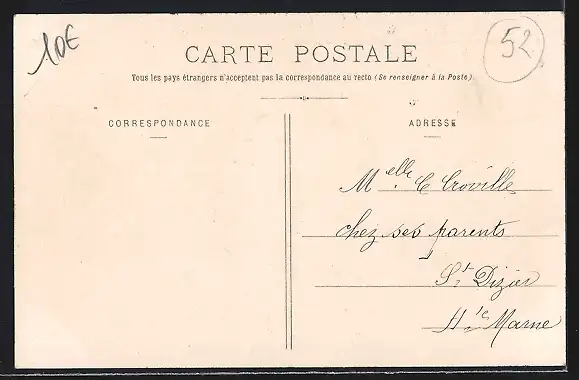 10€
52
CARTE POSTALE
Tous les pays étrangers n'acceptent pas la correspondance au recto (Se renseigner à la Poste)
CORRESPONDANCE
ADRESSE
Melle C Croville
chez ses parents
St Dizier
Hte Marne